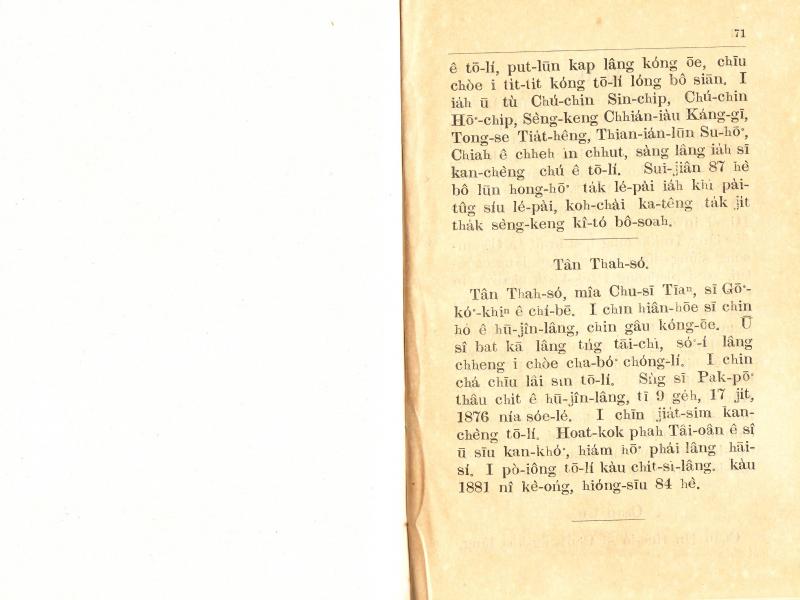 71
ê tō-lí, put-lūn kap lâng kóng ōe, chīu
chòe i tit-tit kóng tō-lí lóng bô siān. I
iáh ū tù Chú-chin Sin-chip, Chú-chin
Hō͘-chip, Sèng-keng Chhián-iàu Káng-gī,
Tong-se Tiát-hêng, Thian-ián-lūn Su-hō͘,
Chiah ê chheh ìn chhut, sàng lâng iáh sī
kan-chèng chú ê tō-lí. Suī-jiân 87 hè
bô lūn hong-hō͘ ták lé-pài iáh khì pài-
tûg síu lé-pài, koh-chài ka-têng ták jit
thák sèng-keng kî-tó bô-soah.
Tân Thah-só.
Tân Thah-só, mîa Chu-sī Tīaⁿ, sī Gō͘-
kó͘-khiⁿ ê chí-bē. I chin hiân-hōe sī chin
hó ê hū-jîn-lâng, chin gâu kóng-ōe. Ū
sî bat kā lâng tńg tāi-chì, só͘-í lâng
chheng i chòe cha-bó͘ chóng-lí. I chin
chá chīu lâi sìn tō-lí. Sǹg sī Pak-pō͘
thâu chit ê hū-jîn-lâng, tī 9 géh, 17 jit,
1876 nía sóe-lé. I chīn jiát-sim kan-
chèng tō-lí. Hoat-kok phah Tâi-oân ê sî
ū sīu kan-khó͘, hiám hō͘ phái lâng hāi-
sí. I pò-iông tō-lí kàu chit-sì-lâng. kàu
1881 nî kè-óng, hióng-sīu 84 hè.